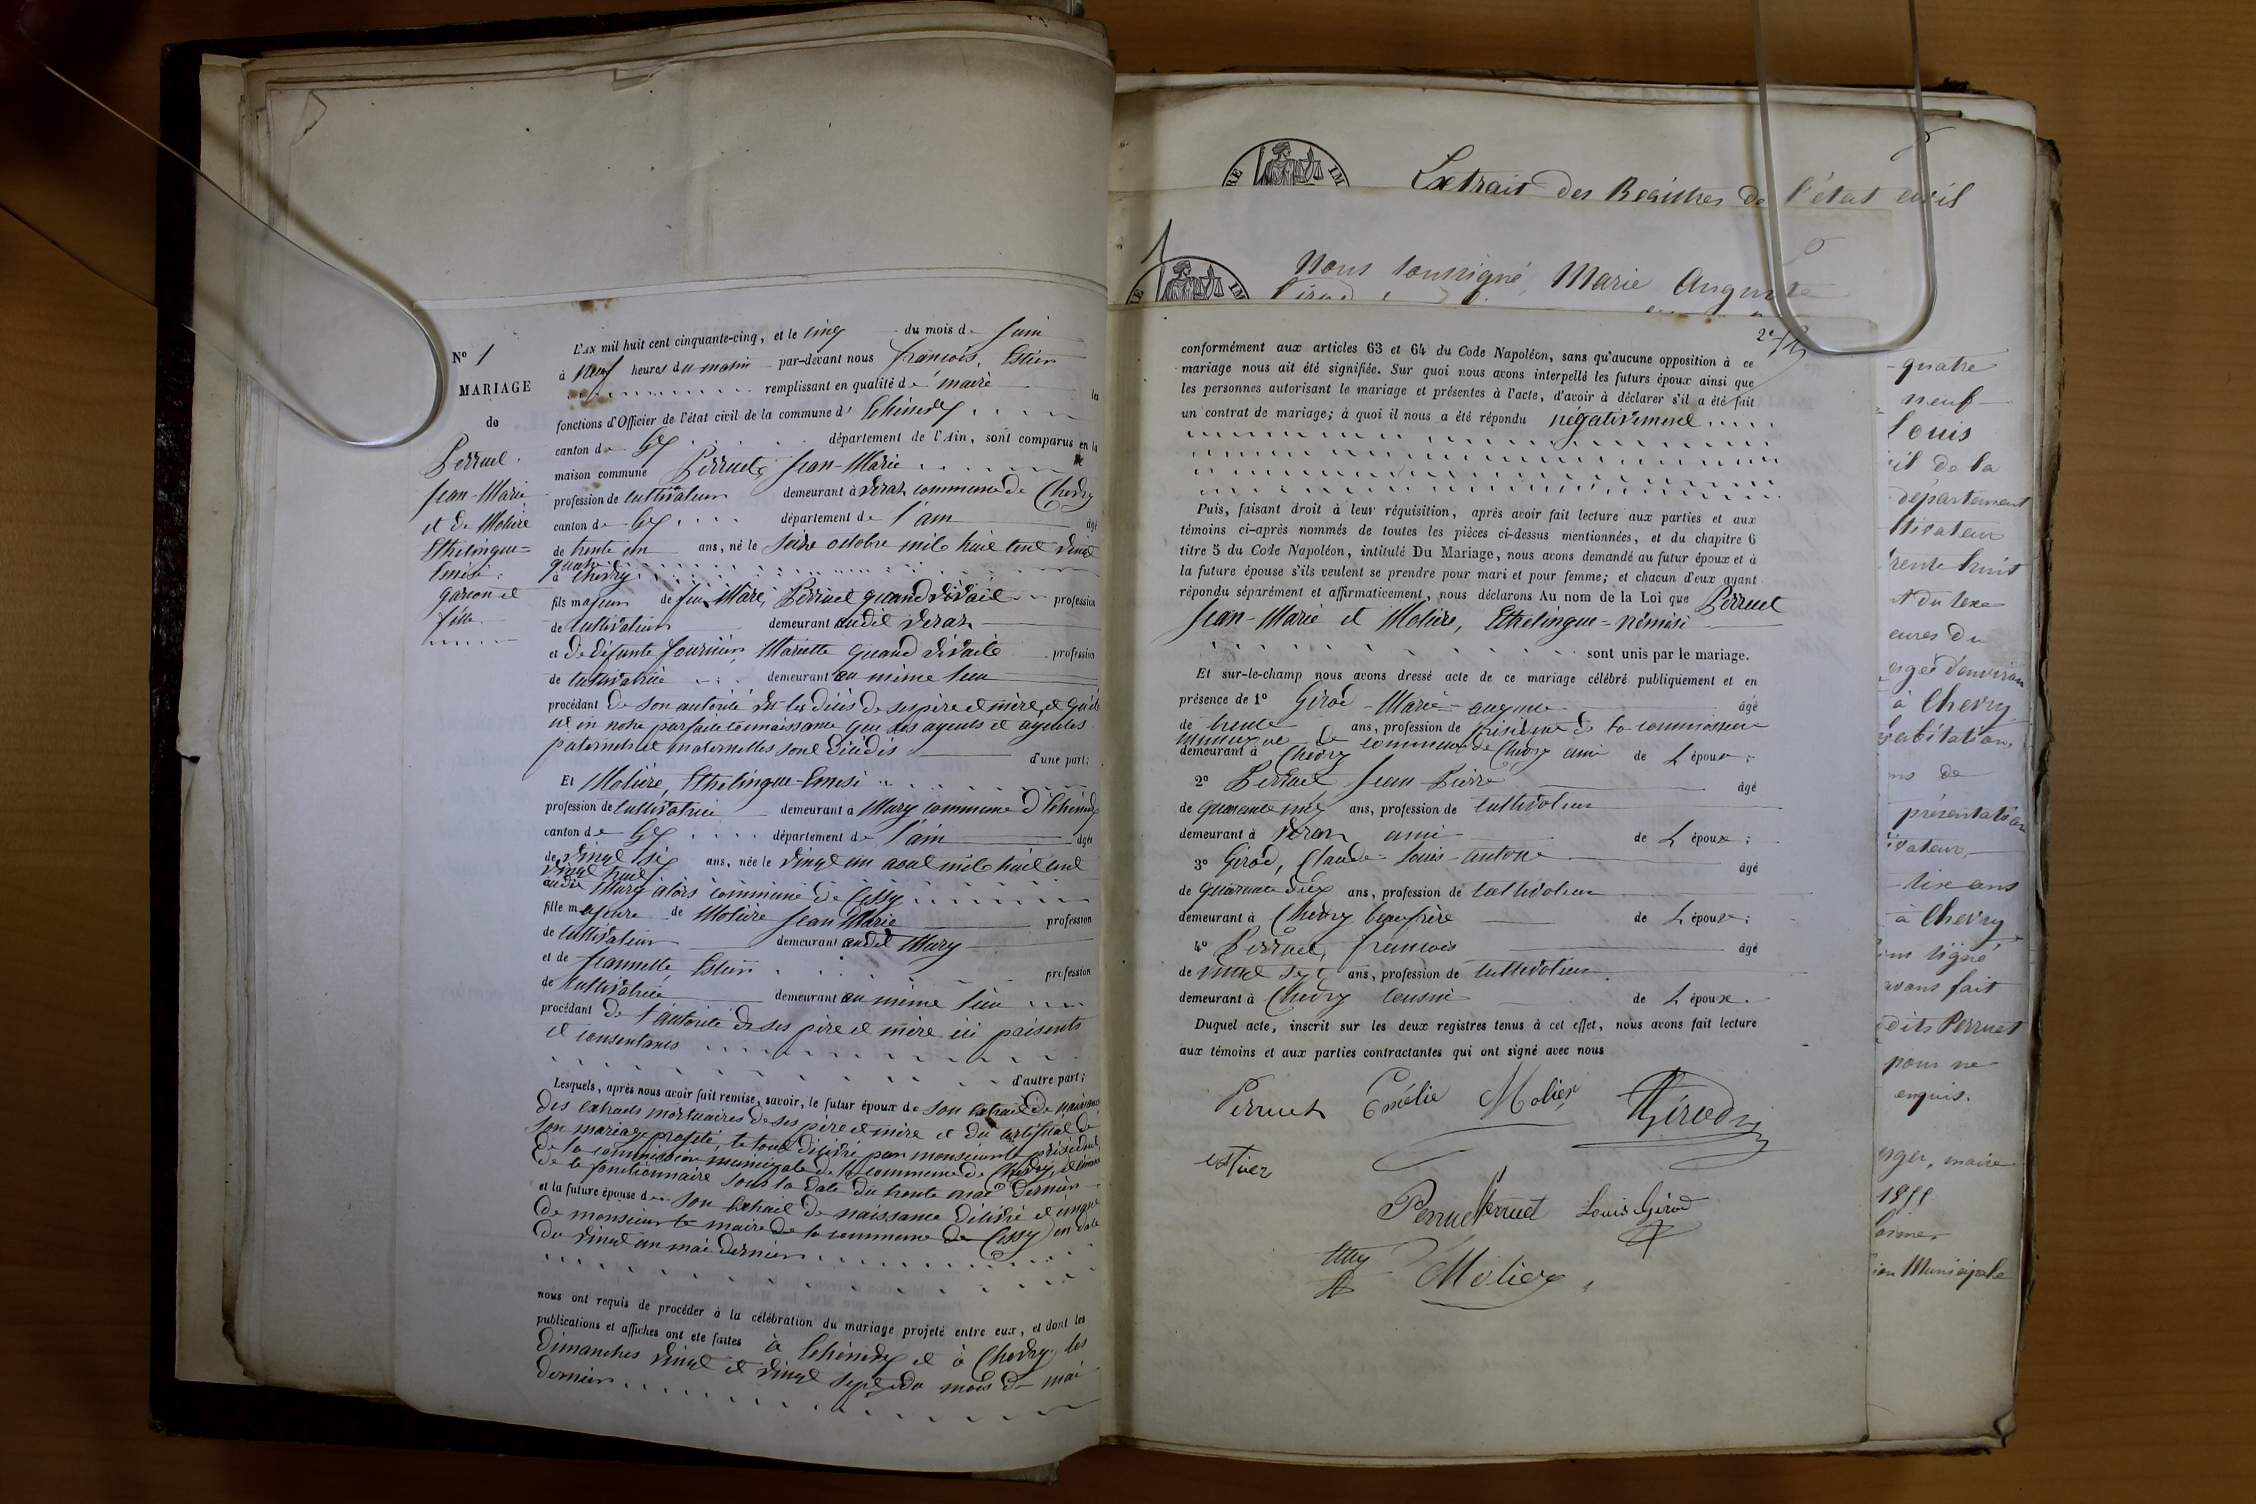 N° 1
MARIAGE
de
Perruet
Jean-Marie
et de Molière
Ethelingue=
Emési
garçon et
fille
L'AN mil huit cent cinquante-cinq, et le cinq du mois de Juin
à neuf heures du matin par-devant nous françois, Estier
remplissant en qualité de maire les
fonctions d'Officier de l'état civil de la commune d' Echenevex
canton de Gex département de l'Ain, sont comparus en la
maison commune Perruet, Jean-Marie
profession de cultivateur demeurant à Veraz commune de Chevry
canton de Gex département de l'ain âgé
de trente un ans, né le seize octobre mil huit cent vingt
quatre
à Chevry
fils majeur de feu Marc, Perruet quand vivait profession
de cultivateur demeurant audit Veraz
et de défunte fournier, Mariette quand vivait profession
de cultivatrice demeurant au même lieu
procédant de son autorité vu les décès de ses père et mère, et qu'il
est en notre parfaite connaissance que ses ayeuls et ayeules
paternels et maternelles sont décédés d'une part;
Et Molière, Ethelingue-Emési
profession de cultivatrice demeurant à Mury commune d'Echenevex
canton de Gex département de l'ain âgée
de vingt six ans, née le vingt un aout mil huit cent
vingt huit
audit Mury alors commune de Cessy
fille majeure de Molière Jean Marie profession
de cultivateur demeurant audit Mury
et de Jeannette Estier profession
de cultivatrice demeurant au même lieu
procédant de l'autorité de ses père et mère ici présents
et consentants
d'autre part;
Lesquels, après nous avoir fait remise, savoir, le futur époux de son extrait de naissance
des extraits mortuaires de ses père et mère et du certificat de
son mariage projeté, le tout délivré par monsieur le président
de la commission municipale de la commune de Chevry, et
de le fonctionnaire sous la date du trente mai dernier
et la future épouse de son extrait de naissance délivré et
de monsieur le maire de la commune de Cessy en date
du vingt un mai dernier
nous ont requis de procéder à la célébration du mariage projeté entre eux, et dont les
publications et affiches ont été faites à Echenevex et à Chevry les
dimanches vingt et vingt sept du mois de mai
dernier
Extrait des Registres de l'état civil
Nous soussigné, Marie Auguste
conformément aux articles 63 et 64 du Code Napoléon, sans qu'aucune opposition à ce
mariage nous ait été signifiée. Sur quoi nous avons interpellé les futurs époux ainsi que
les personnes autorisant le mariage et présentes à l'acte, d'avoir à déclarer s'il a été fait
un contrat de mariage; à quoi il nous a été répondu négativement
Puis, faisant droit à leur réquisition, après avoir fait lecture aux parties et aux
témoins ci-après nommés de toutes les pièces ci-dessus mentionnées, et du chapitre 6
titre 5 du Code Napoléon, intitulé Du Mariage, nous avons demandé au futur époux et à
la future épouse s'ils veulent se prendre pour mari et pour femme; et chacun d'eux ayant
répondu séparément et affirmativement, nous déclarons Au nom de la Loi que Perruet
Jean-Marie et Molière, Ethelingue=némési
sont unis par le mariage.
Et sur-le-champ nous avons dressé acte de ce mariage célébré publiquement et en
présence de 1° Girod Marie auguste âgé
de trente ans, profession de président de la commission
municipale de commune de Chevry
demeurant à Chevry ami de L'époux;
2° Perruet Jean Pierre âgé
de quarante cinq ans, profession de cultivateur
demeurant à Veraz ami de L'époux;
3° Girod, Claude-Louis-antoine âgé
de quarante deux ans, profession de cultivateur
demeurant à Chevry beau frère de L'époux;
4° Perruet, françois âgé
de vingt sept ans, profession de cultivateur
demeurant à Chevry cousin de L'époux.
Duquel acte, inscrit sur les deux registres tenus à cet effet, nous avons fait lecture
aux témoins et aux parties contractantes qui ont signé avec nous
Perruet Emélie Molier Girod
estier
Perruet Perruet Louis Girod
Molier
quatre
neuf
Louis
il de la
département
ltivateur
trente huit
et du sexe
eures du
âgé d'environ
à Chevry
habitation,
ns de
présentation
ivateur,
dix ans
à Chevry
signé
avons fait
dits Perruet
pour ne
enquis.
erger, maire
1855
ion Municipale